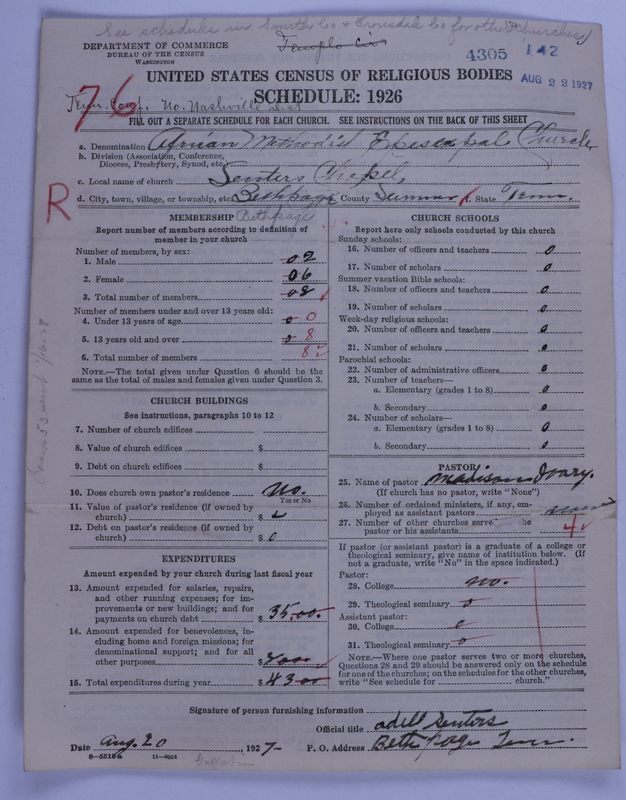 See schedules in Smith Co & Trousdale Co for other churches
DEPARTMENT OF COMMERCE
BUREAU OF THE CENSUS
WASHINGTON
4305 142
AUG 22 1927
UNITED STATES CENSUS OF RELIGIOUS BODIES
76
Tenn. Conf. No. Nashville Dist
SCHEDULE: 1926
FILL OUT A SEPARATE SCHEDULE FOR EACH CHURCH. SEE INSTRUCTIONS ON THE BACK OF THIS SHEET
a. Denomination African Methodist Episcopal Church
b. Division (Association, Conference, Diocese, Presbytery, Synod, etc.
c. Local name of church Senters Chapel
R
d. City, town, village, or township, etc. Bethpage e. County Sumner f. State Tenn.
Bethpage
MEMBERSHIP
Report number of members according to definition of member in your church
Number of members, by sex:
1. Male 02
2. Female 06
3. Total number of members 08
Number of members under and over 13 years old:
4. Under 13 years of age 0 0
5. 13 years old and over 0 8
6. Total number of members 8
NOTE.—The total given under Question 6 should be the same as the total of males and females given under Question 3.
CHURCH BUILDINGS
See instructions, paragraphs 10 to 12
7. Number of church edifices
8. Value of church edifices $
9. Debt on church edifices $
10. Does church own pastor's residence No.
Yes or No
11. Value of pastor's residence (if owned by church) $
12. Debt on pastor's residence (if owned by church) $ 0
EXPENDITURES
Amount expended by your church during last fiscal year
13. Amount expended for salaries, repairs, and other running expenses; for improvements or new buildings; and for payments on church debt $ 35.00
14. Amount expended for benevolences, including home and foreign missions; for denominational support; and for all other purposes $
15. Total expenditures during year $ 43 00
CHURCH SCHOOLS
Report here only schools conducted by this church
Sunday schools:
16. Number of officers and teachers 0
17. Number of scholars 0
Summer vacation Bible schools:
18. Number of officers and teachers 0
19. Number of scholars 0
Week-day religious schools:
20. Number of officers and teachers 0
21. Number of scholars 0
Parochial schools:
22. Number of administrative officers 0
23. Number of teachers—
a. Elementary (grades 1 to 8) 0
b. Secondary 0
24. Number of scholars—
a. Elementary (grades 1 to 8) 0
b. Secondary 0
PASTOR
25. Name of pastor Madison Ivary.
(If church has no pastor, write "None")
26. Number of ordained ministers, if any, employed as assistant pastors none
27. Number of other churches serve the pastor or his assistants 4
If pastor (or assistant pastor) is a graduate of a college or theological seminary, give name of institution below. (If not a graduate, write "No" in the space indicated.)
Pastor:
28. College no.
29. Theological seminary 0
Assistant pastor:
30. College 0
31. Theological seminary 0
NOTE.—Where one pastor serves two or more churches, Questions 28 and 29 should be answered only on the schedule for one of the churches; on the schedules for the other churches, write "See schedule for church."
Signature of person furnishing information
Official title adell Senters
Date Aug. 20, 1927- P. O. Address Beth page Tenn.
8-5518a 11-9024
Gallatin